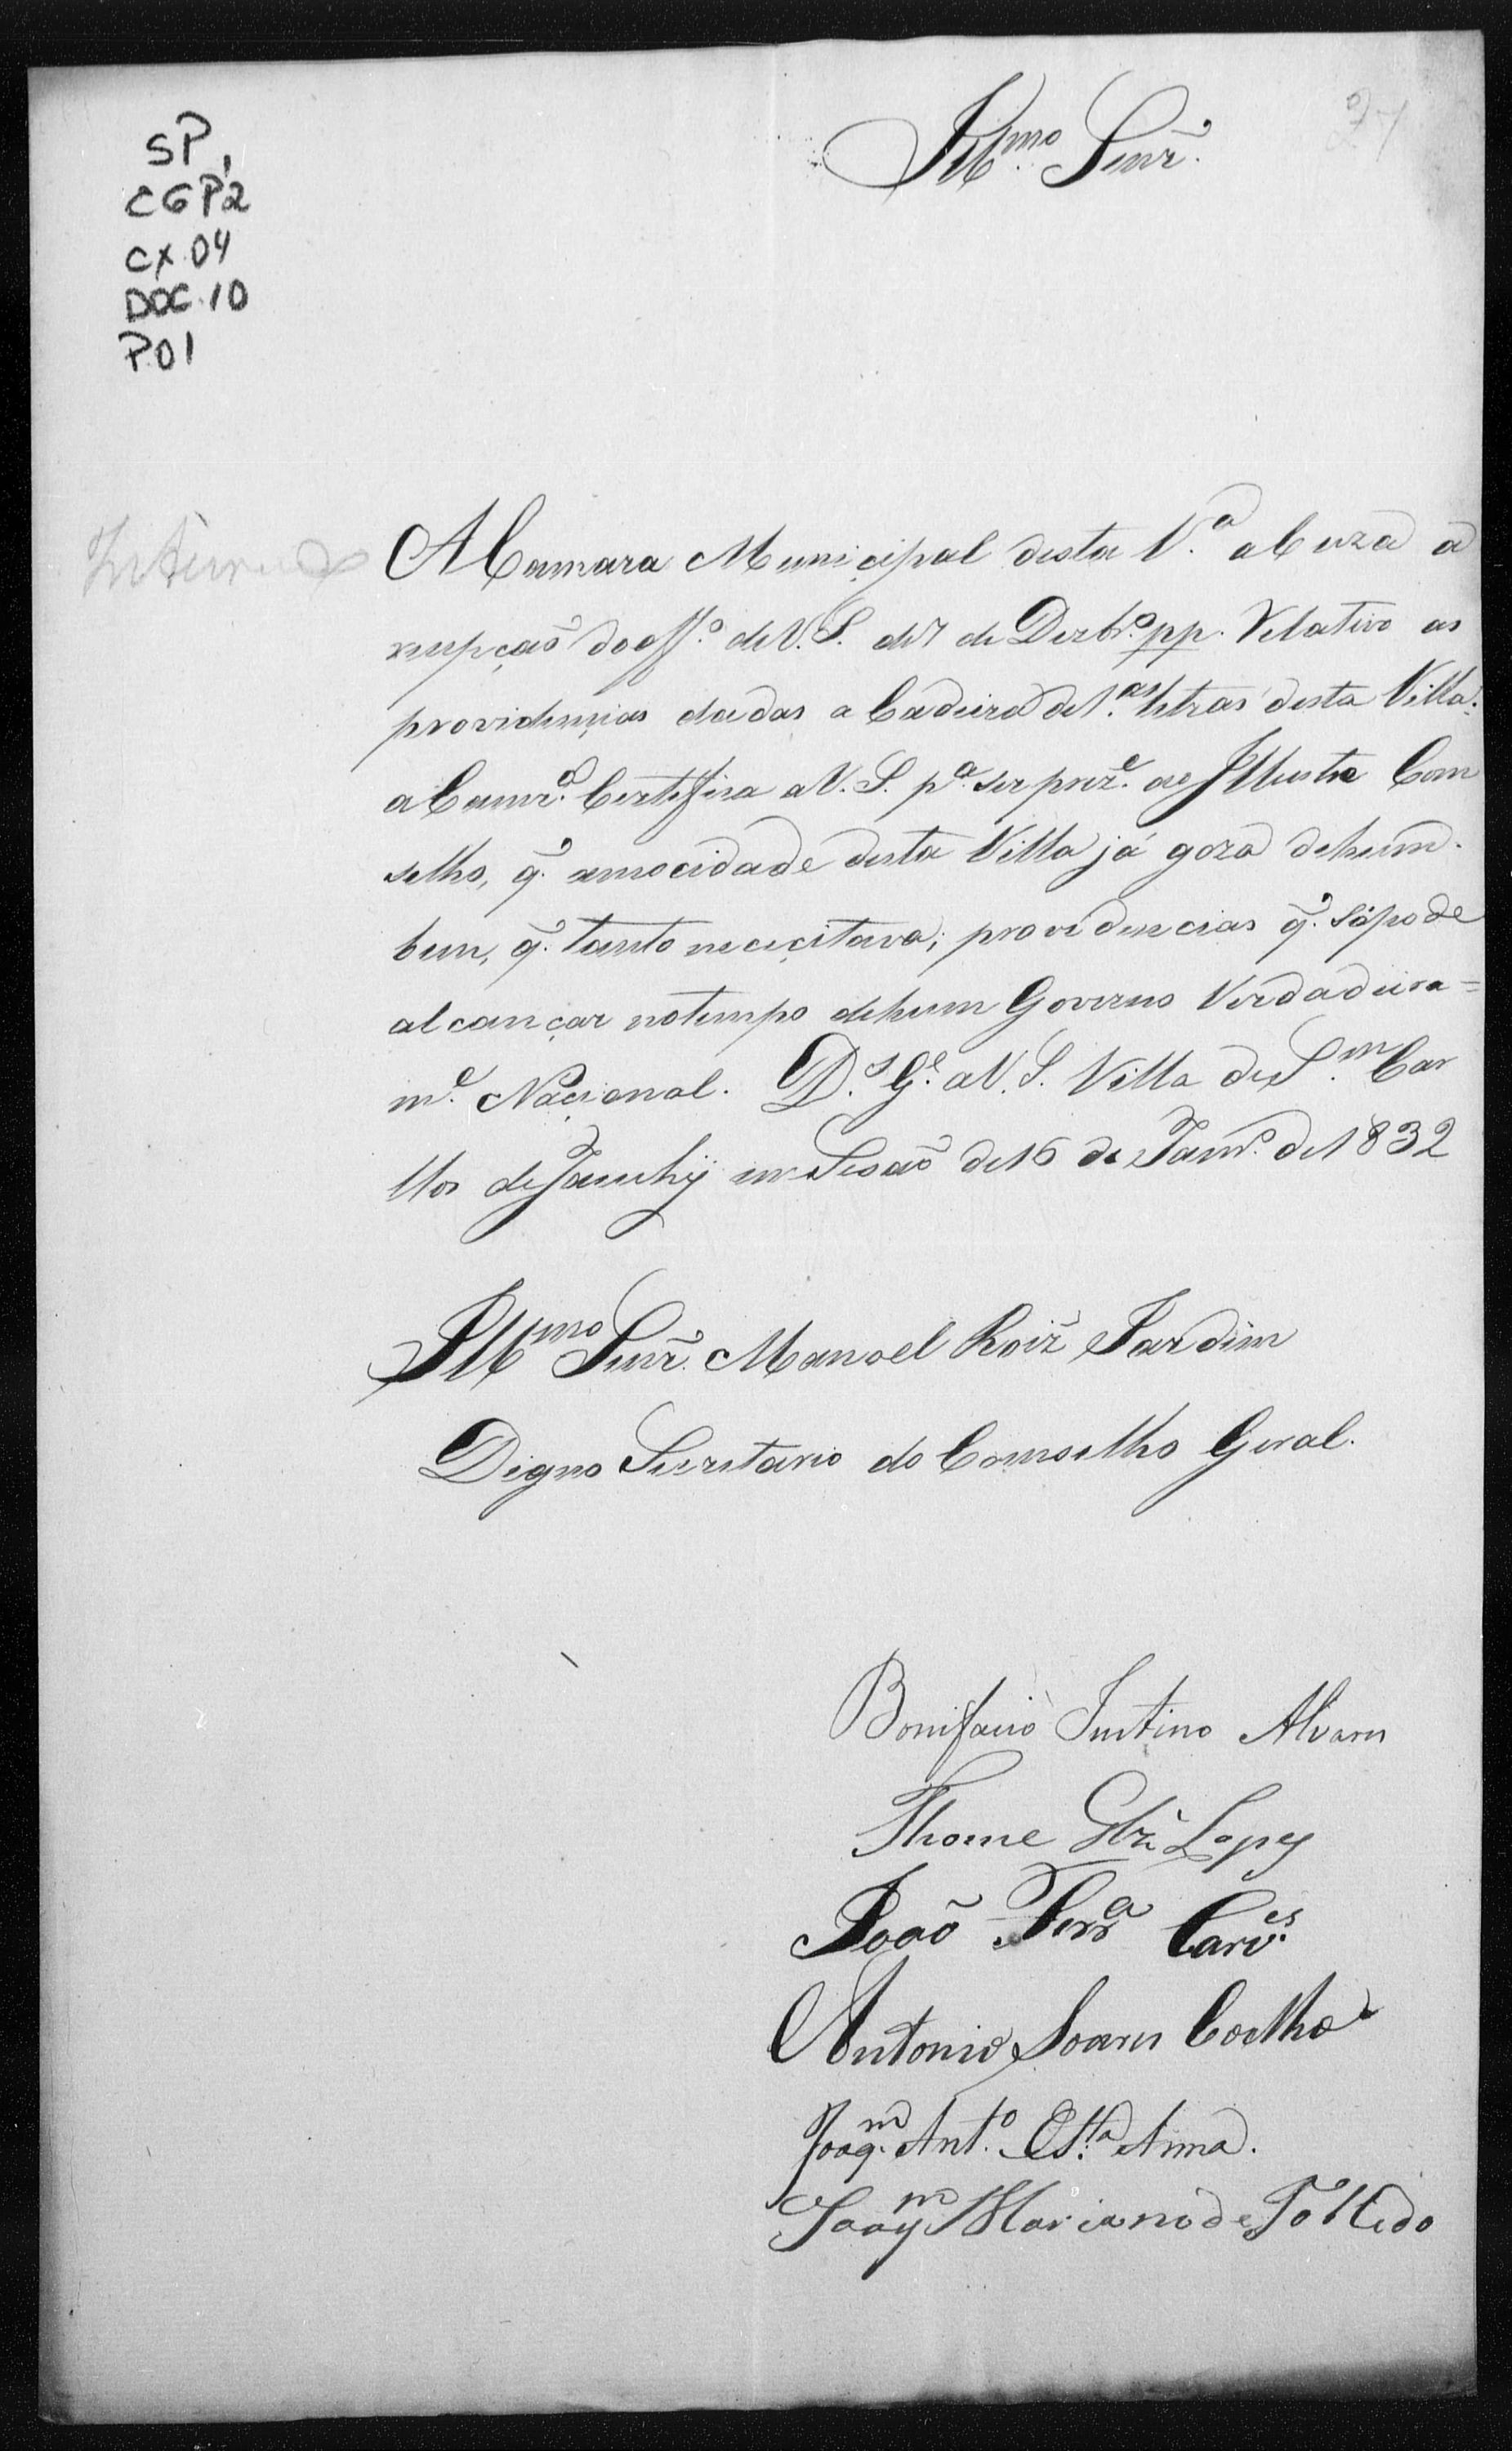 SP,
CGP2
CX.04
DOC.10
P.01
27
Illmo. Senr.
A Camara Municipal desta V.a acuza a
recepçaõ do off.o de V. S. de 7 de Dezbr.o pp. Relativo as
providencias dadas a Cadeira de 1.as letras desta Villa.
a Camr.a Certefica a V. S. p.a ser prez.e ao Illustre Con
selho, q̃. a mocidade desta Villa já goza de hum
bem, q̃. tanto necicitava; providencias q̃. só pode
alcançar no tempo de hum Governo Verdadeira=
m.e Nacional. D.s G.e a V. S. Villa de S.m Car
llos de Jacuhÿ em Sesaõ de 16 de Janr.o de 1832
Illmo Senr. Manoel Roiz̃ Jardim
Digno Secretario do Comselho Geral.
Bonifacio Justino Alvares
Thome Glz̃ Lopes
Joaõ Ferr.a Carv.es
Antonio Soares Coelho
Joaq.m Ant.o S.ta Anna.
Joaq.m Mariano de Tolledo